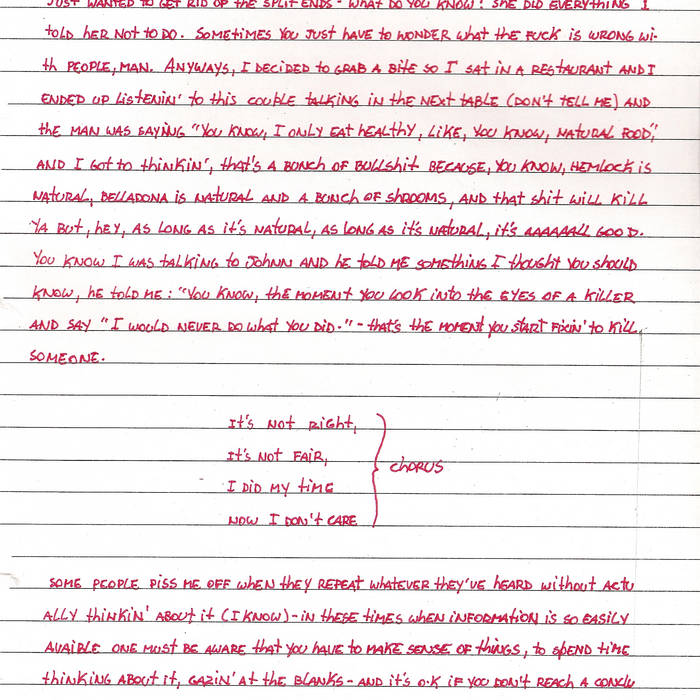 JUST WANTED TO GET RID OF THE SPLIT ENDS - WHAT DO YOU KNOW! SHE DID EVERYTHING I
TOLD HER NOT TO DO. SOMETIMES YOU JUST HAVE TO WONDER WHAT THE FUCK IS WRONG WI-
TH PEOPLE, MAN. ANYWAYS, I DECIDED TO GRAB A BITE SO I SAT IN A RESTAURANT AND I
ENDED UP LISTENIN' TO THIS COUPLE TALKING IN THE NEXT TABLE (DON'T TELL ME) AND
THE MAN WAS SAYING "YOU KNOW, I ONLY EAT HEALTHY, LIKE, YOU KNOW, NATURAL FOOD",
AND I GOT TO THINKIN', THAT'S A BUNCH OF BULLSHIT BECAUSE, YOU KNOW, HEMLOCK IS
NATURAL, BELLADONA IS NATURAL AND A BUNCH OF SHROOMS, AND THAT SHIT WILL KILL
YA BUT, HEY, AS LONG AS IT'S NATURAL, AS LONG AS IT'S NATURAL, IT'S AAAAAALL GOOD.
YOU KNOW I WAS TALKING TO JOHNN AND HE TOLD ME SOMETHING I THOUGHT YOU SHOULD
KNOW, HE TOLD ME: "YOU KNOW, THE MOMENT YOU LOOK INTO THE EYES OF A KILLER
AND SAY "I WOULD NEVER DO WHAT YOU DID." - THAT'S THE MOMENT YOU START FIXIN' TO KILL
SOMEONE.
IT'S NOT RIGHT,
IT'S NOT FAIR,
I DID MY TIME
NOW I DON'T CARE
CHORUS
SOME PEOPLE PISS ME OFF WHEN THEY REPEAT WHATEVER THEY'VE HEARD WITHOUT ACTU
ALLY THINKIN' ABOUT IT (I KNOW) - IN THESE TIMES WHEN INFORMATION IS SO EASILY
AVAIBLE ONE MUST BE AWARE THAT YOU HAVE TO MAKE SENSE OF THINGS, TO SPEND TIME
THINKING ABOUT IT, GAZIN' AT THE BLANKS - AND IT'S O.K IF YOU DON'T REACH A CONCLU